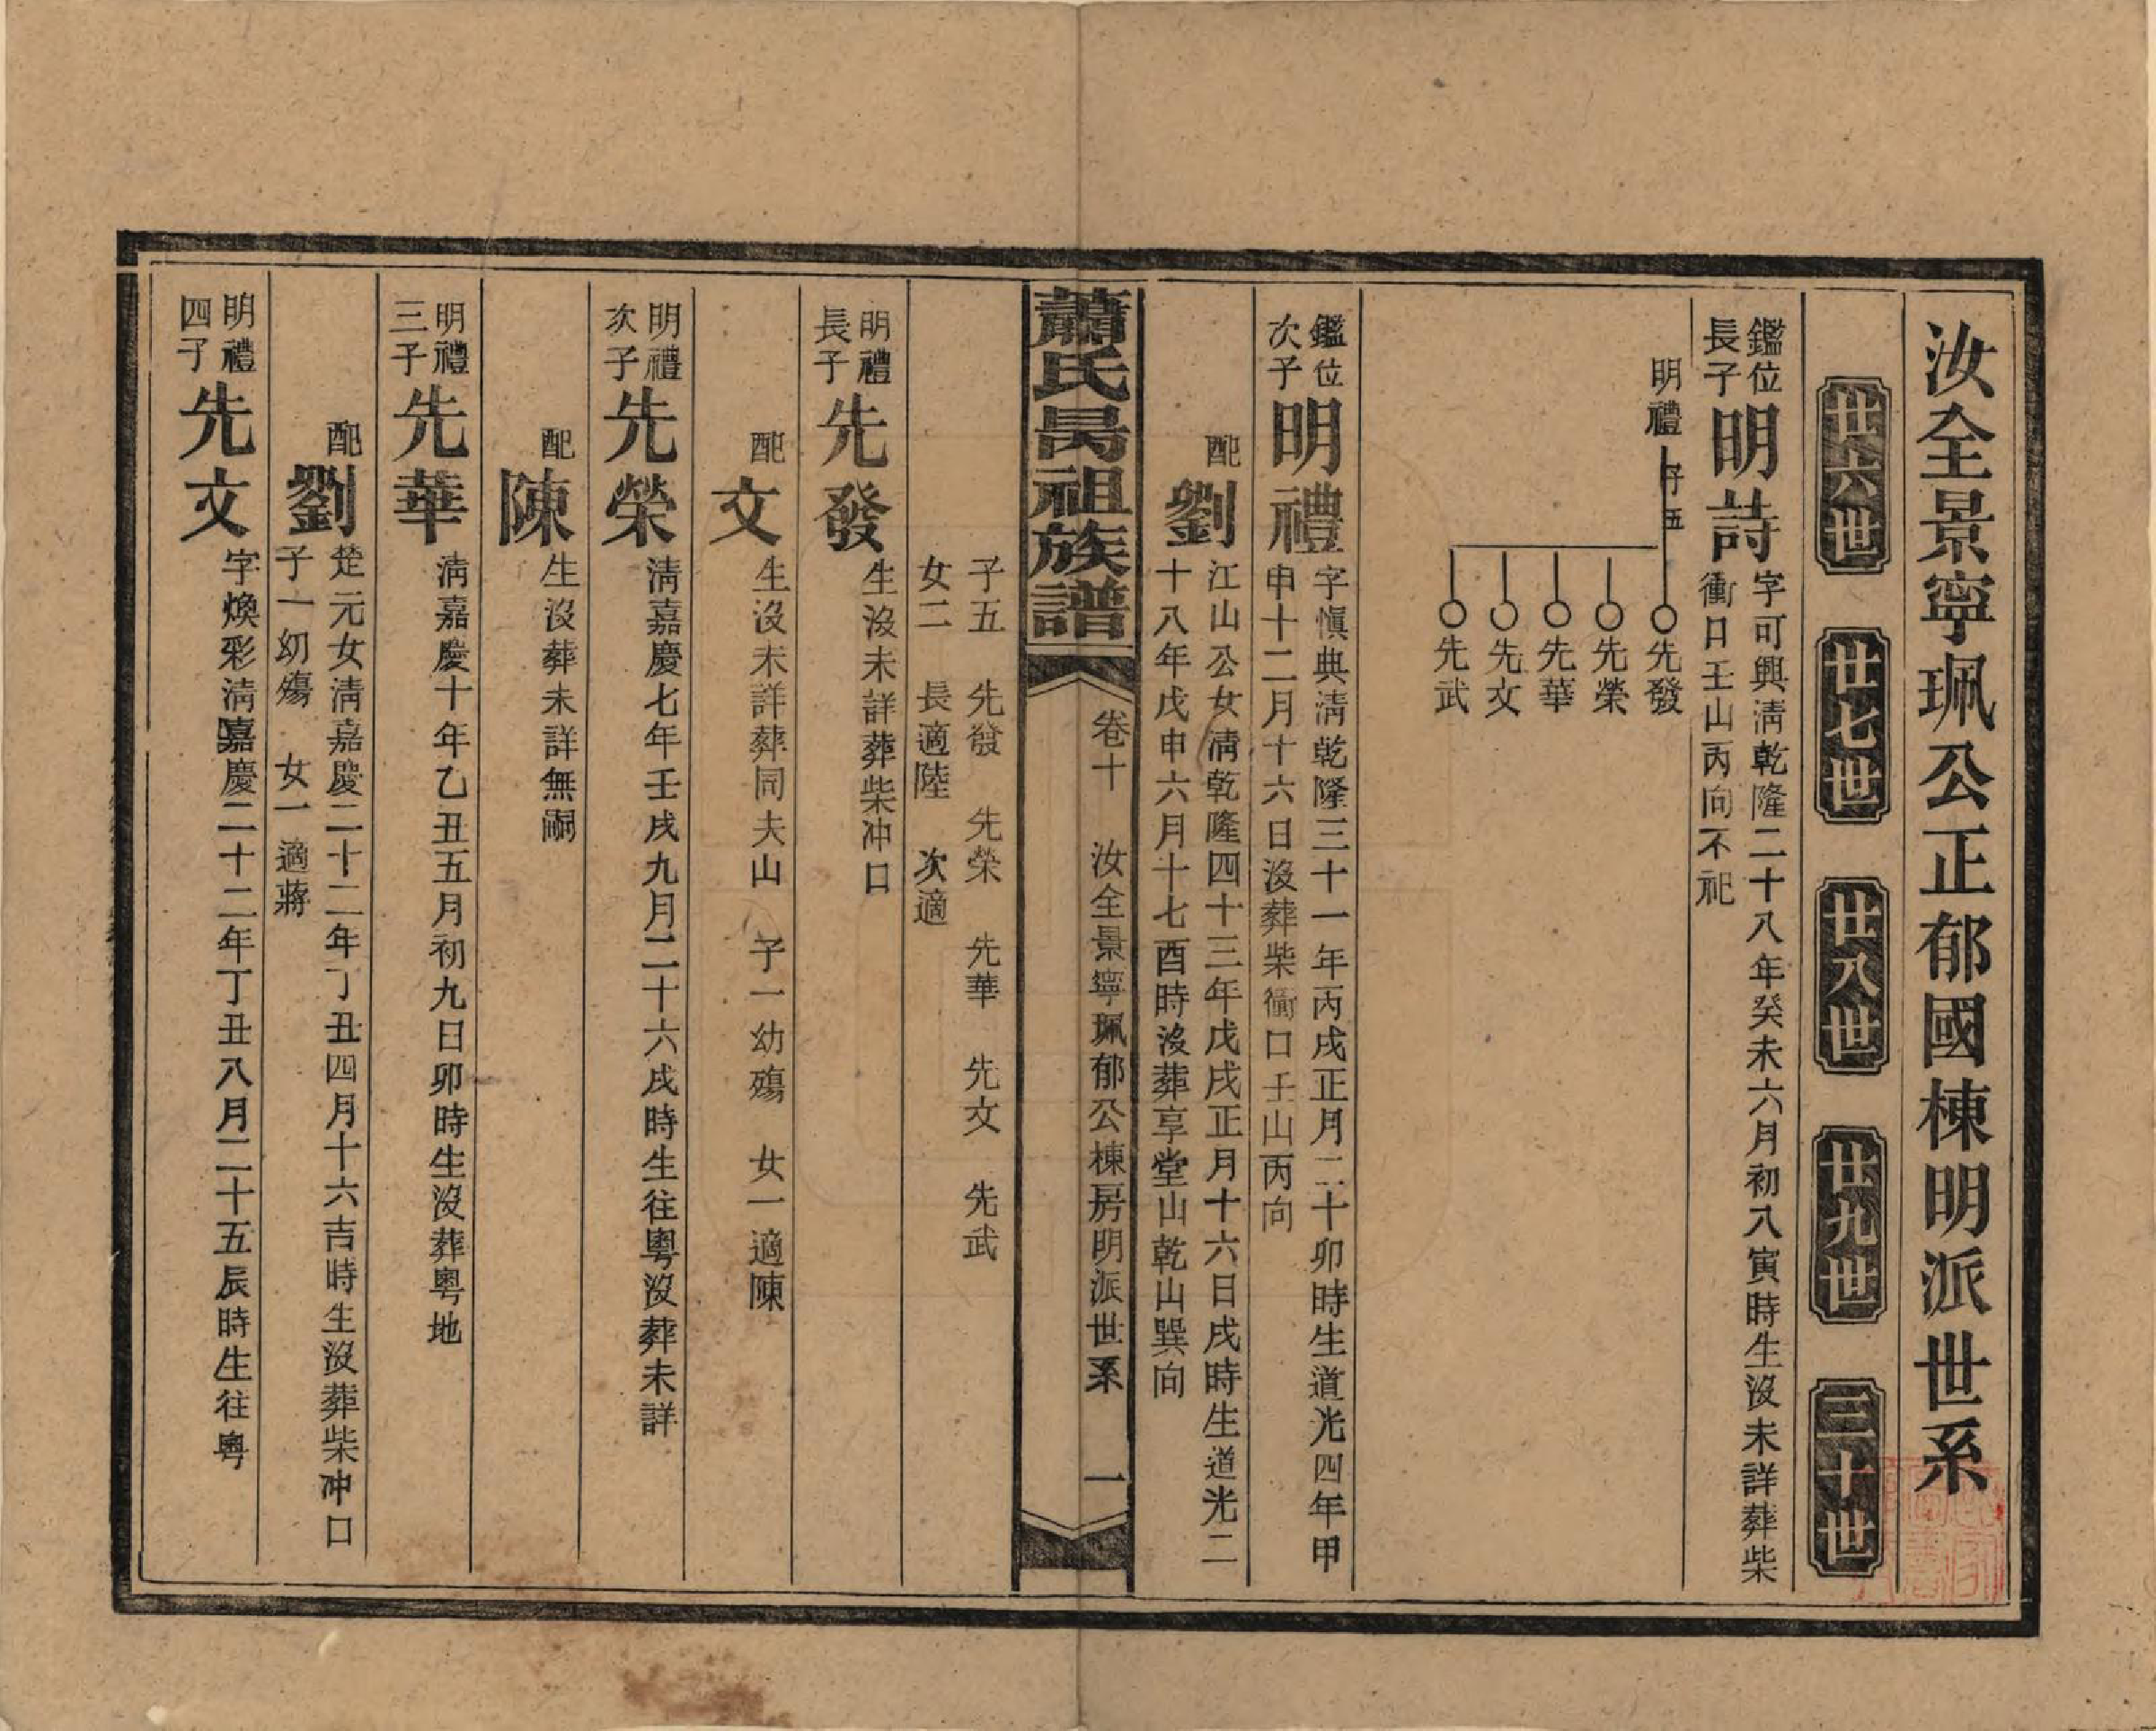 汝全景寧珮公正郁國棟明派世系
廿六世　廿七世　廿八世　廿九世　三十世
鑑位
長子
明詩
字可興淸乾隆二十八年癸未六月初八寅時生沒未詳葬柴
衝口壬山丙向不祀
明禮
子五
先發
先榮
先華
先文
先武
鑑位
次子
明禮
字愼典淸乾隆三十一年丙戌正月二十卯時生道光四年甲
申十二月十六日沒葬柴衝口壬山丙向
配
劉
江山公女淸乾隆四十三年戊戌正月十六日戌時生道光二
十八年戊申六月十七酉時沒葬享堂山乾山巽向
蕭氏昺祖族譜
卷十　汝全景寧珮郁公棟房明派世系　一
子五　先發　先榮　先華　先文　先武
女二　長適陸　次適
明禮
長子
先發
生沒未詳葬柴冲口
配
文
生沒未詳葬同夫山　子一幼殤　女一適陳
明禮
次子
先榮
淸嘉慶七年壬戌九月二十六戌時生往粵沒葬未詳
配
陳
生沒葬未詳無嗣
明禮
三子
先華
淸嘉慶十年乙丑五月初九日卯時生沒葬粵地
配
劉
楚元女淸嘉慶二十二年丁丑四月十六吉時生沒葬柴冲口
子一幼殤　女一適蔣
明禮
四子
先文
字煥彩淸嘉慶二十二年丁丑八月二十五辰時生往粵